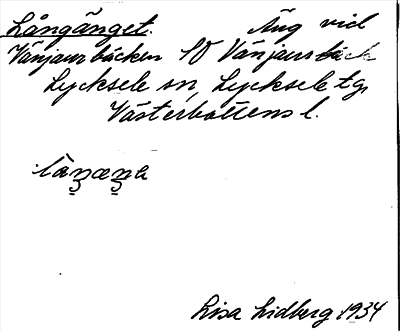 Långänget. Äng vid
Vänjaurbäcken SV Vänjaurbäck
Lycksele sn, Lycksele tg,
Västerbottens l.
Lisa Lidberg 1934